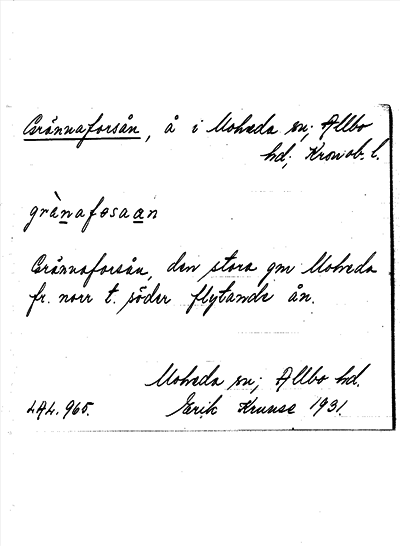 Grännaforsån, å i Moheda sn; Allbo
hd; Kronob. l.
grànafosaan
Grännaforsån, den stora gm Moheda
fr. norr t. söder flytande ån.
Moheda sn; Allbo hd.
LAL. 965. Erik Kruuse 1931.